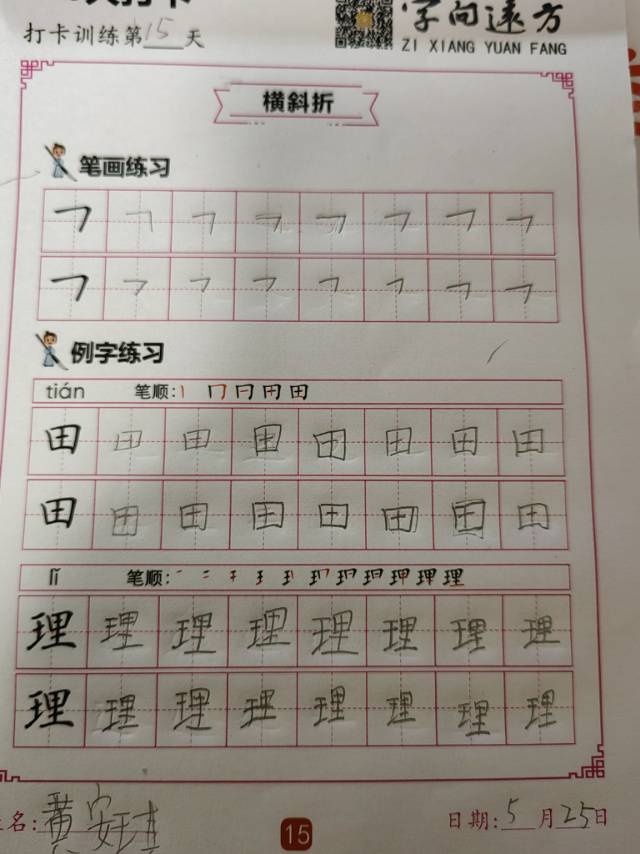 打卡
打卡训练第15天
字问遠方
ZI XIANG YUAN FANG
横斜折
笔画练习
㇇ ㇇ ㇇ ㇇ ㇇ ㇇ ㇇ ㇇
㇇ ㇇ ㇇ ㇇ ㇇ ㇇ ㇇ ㇇
例字练习
tián 笔顺: 丨 冂 冃 用 田
田 田 田 田 田 田 田 田
田 田 田 田 田 田 田 田
lǐ 笔顺:
理 理 理 理 理 理 理 理
理 理 理 理 理 理 理 理
名: 黄安
日期: 5月25日
15